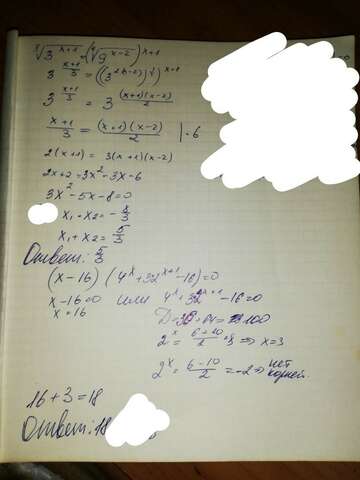 ∛3^(x+1) = (∜9^(x-2))^(x+1)
3^((x+1)/3) = ((3^(2(x-2)))^(1/4))^(x+1)
3^((x+1)/3) = 3^((x+1)(x-2)/2)
(x+1)/3 = (x+1)(x-2)/2 | · 6
2(x+1) = 3(x+1)(x-2)
2x+2=3x²-3x-6
3x²-5x-8=0
x₁·x₂=-8/3
x₁+x₂=5/3
Ответ: 5/3
(x-16)(4^x+32^(x+1)-16)=0
x-16=0 или 4^x+32^(x+1)-16=0
x=16
2^x=(6+10)/2=8 => x=3
2^x=(6-10)/2=-2 => нет корней.
16+3=18
Ответ: 18